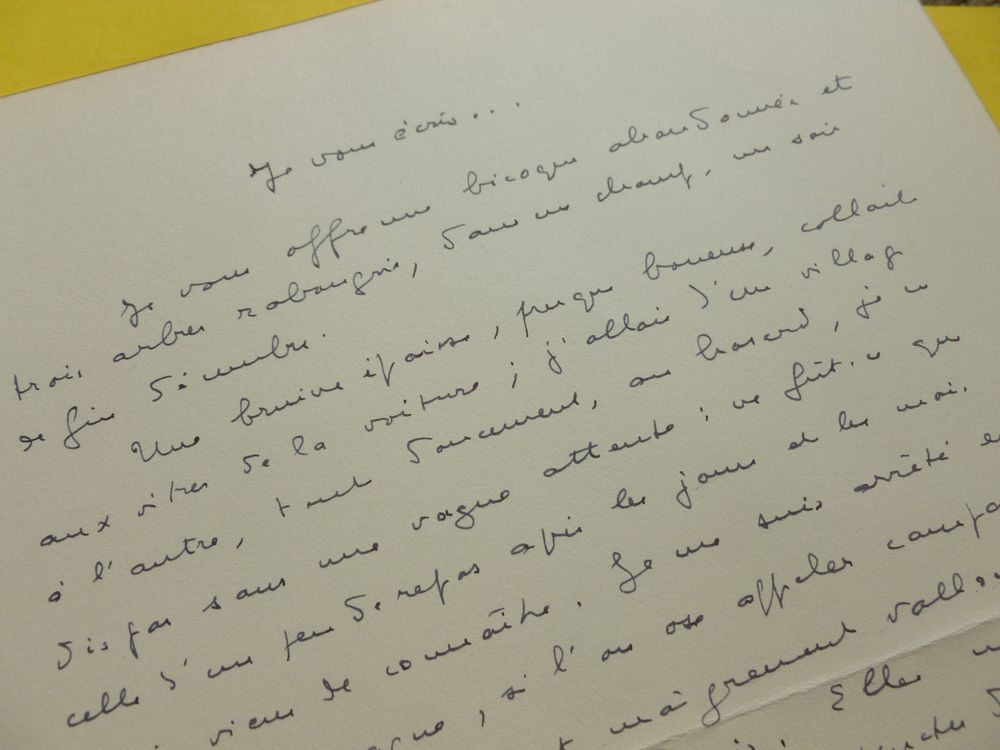 Je vous écris...
Je vous offre une bicoque abandonnée et
trois arbres rabougris, dans un champ, un soir
de fin décembre.
Une bruine épaisse, presque boueuse, collait
aux vitres de la voiture ; j'allais d'un village
à l'autre, tout doucement, au hasard, je ne
dis pas sans une vague attente : ne fût-ce que
celle d'un peu de repos après les jours et les mois
viens de connaître. Je me suis arrêté en
si l'on ose appeler campa
maigrement vallon
Elles